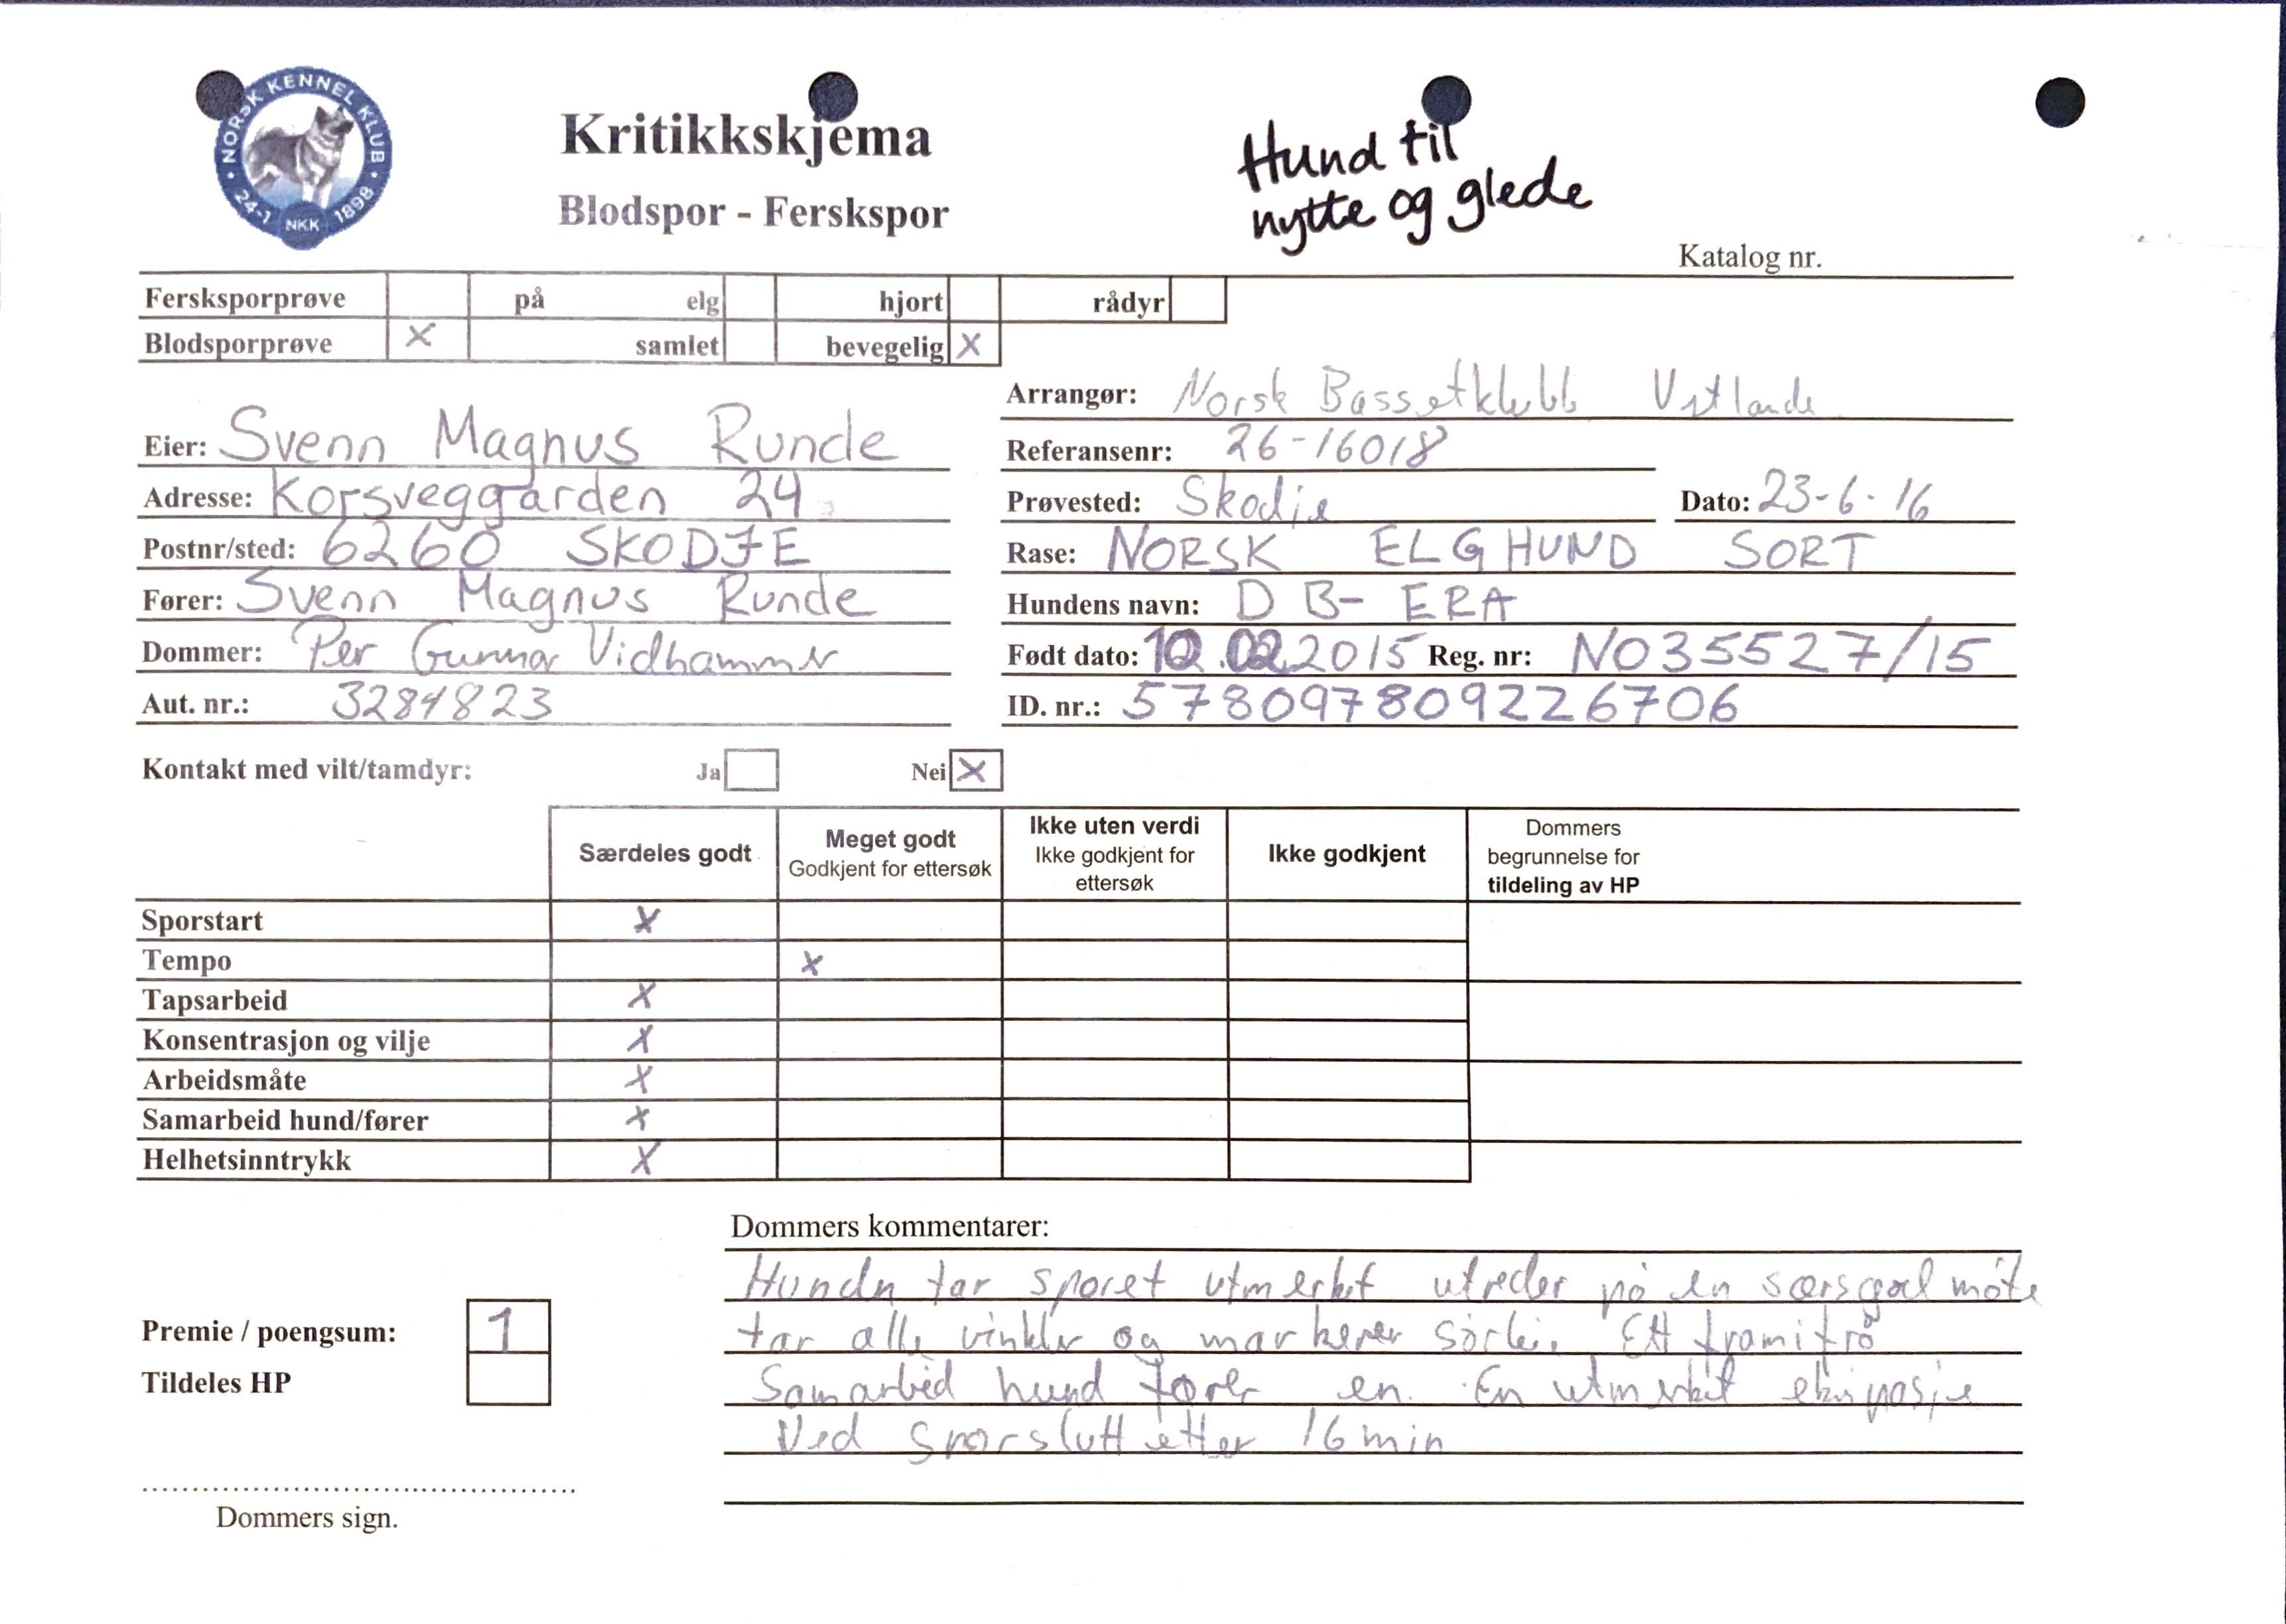 NORSK KENNEL KLUB
24-1 NKK 1898
Kritikkskjema
Blodspor - Ferskspor
Hund til
nytte og glede
Katalog nr.
Fersksporprøve på elg hjort rådyr
Blodsporprøve X samlet bevegelig X
Arrangør: Norsk Bassetklubb
Eier: Svenn Magnus Runde
Referansenr: 26-16018
Adresse: Korsveggarden 24
Prøvested: Skodje Dato: 23-6-16
Postnr/sted: 6260 SKODJE
Rase: NORSK ELGHUND SORT
Fører: Svenn Magnus Runde
Hundens navn: DB-ERA
Dommer: Per Gunnar Vidhammer
Født dato: .02.2015 Reg. nr: NO35527/15
Aut. nr.:
ID. nr.: 578097809226706
Kontakt med vilt/tamdyr: Ja Nei X
Særdeles godt
Meget godt
Godkjent for ettersøk
Ikke uten verdi
Ikke godkjent for
ettersøk
Ikke godkjent
Dommers
begrunnelse for
tildeling av HP
Sporstart X
Tempo X
Tapsarbeid X
Konsentrasjon og vilje X
Arbeidsmåte X
Samarbeid hund/fører X
Helhetsinntrykk X
Dommers kommentarer:
Hunden tar sporet utmerket utreder på en særsgod måte
tar alle vinkler og markerer Ett framifrå
Samarbeid hund fører en. En utmerket ekvipasje
Ved sporslutt etter 16 min
Premie / poengsum: 1
Tildeles HP
Dommers sign.